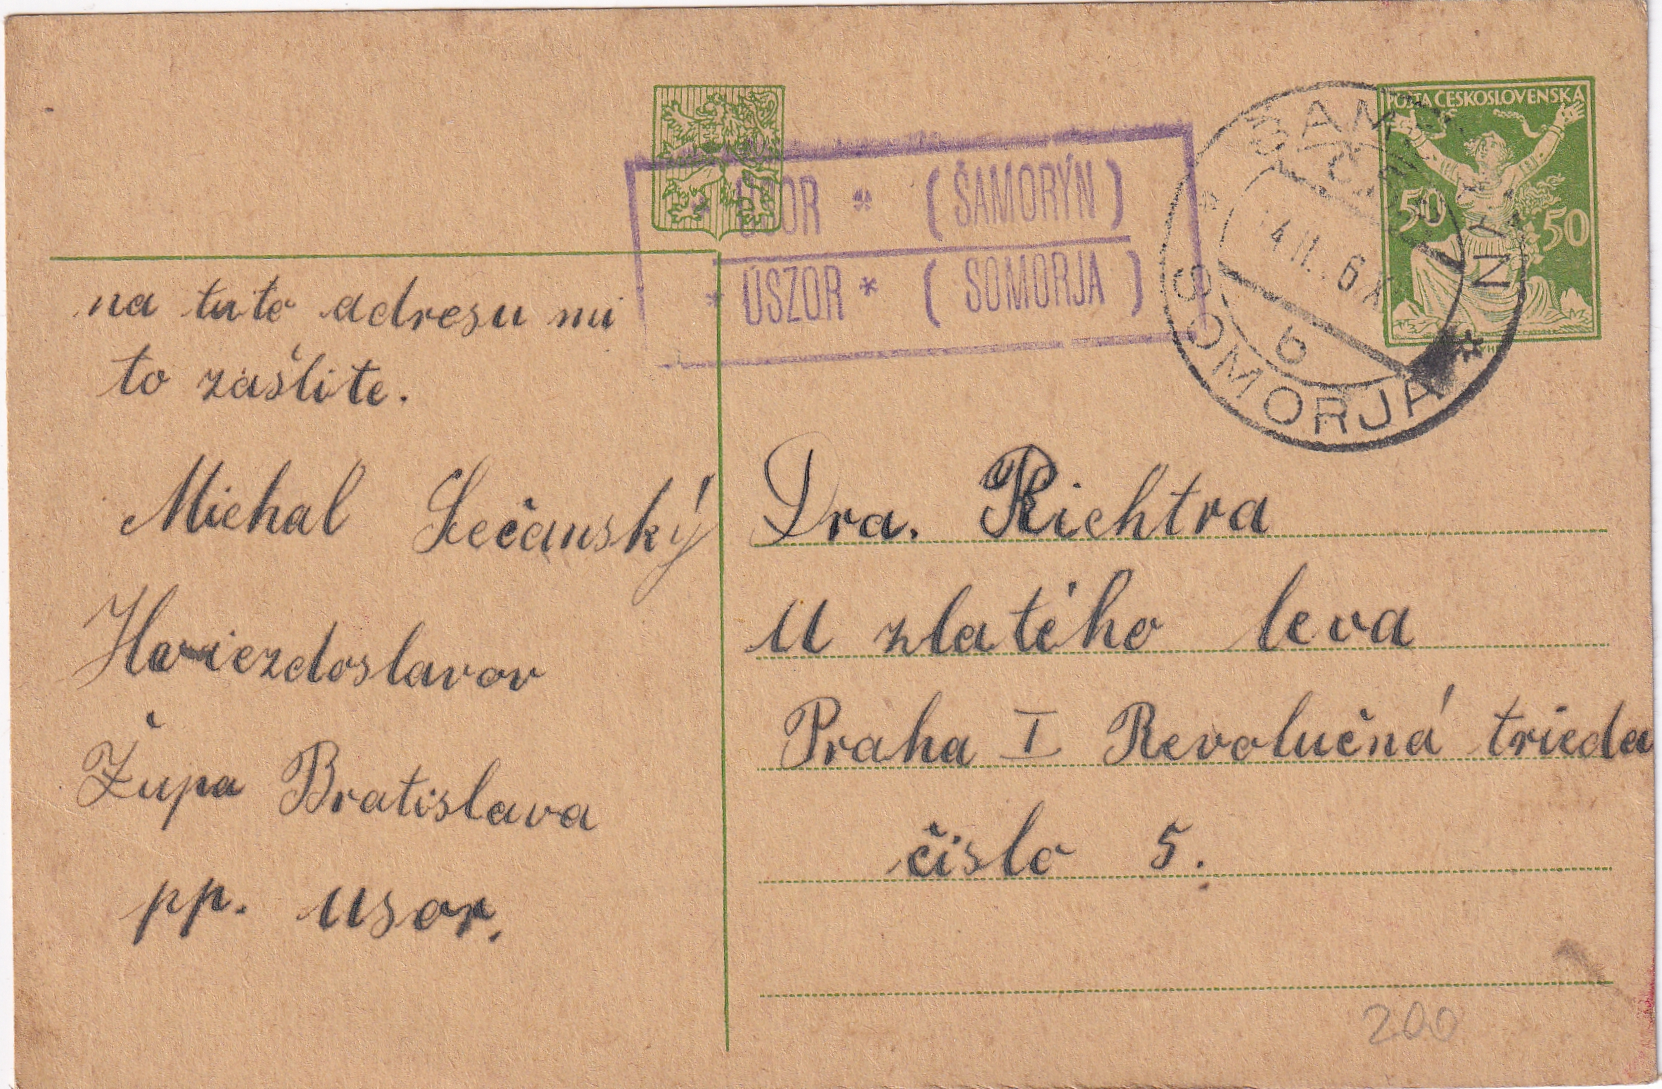 POŠTA ČESKOSLOVENSKÁ
50 50
* ÚSOR * (ŠAMORÝN)
* ÚSZOR * (SOMORJA)
ŠAMORÝN
SOMORJA
b
na tuto adresu mi
to zašlite.
Michal Sečanský
Hviezdoslavov
Župa Bratislava
pp. Usor.
Dra. Richtra
U zlatého leva
Praha I Revolučná trieda
číslo 5.
200